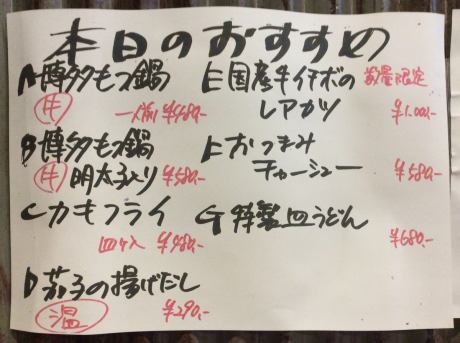 本日のおすすめ
A 博多もつ鍋
㊗牛 一人前 ¥480.-
B 博多もつ鍋
牛 明太子入り ¥580.-
C カキフライ
四ヶ入 ¥480.-
D 茄子の揚げだし
温 ¥290.-
E 国産牛イチボの 数量限定
レアカツ ¥1.000.-
F おつまみ
チャーシュー ¥580.-
G 特製皿うどん
¥680.-